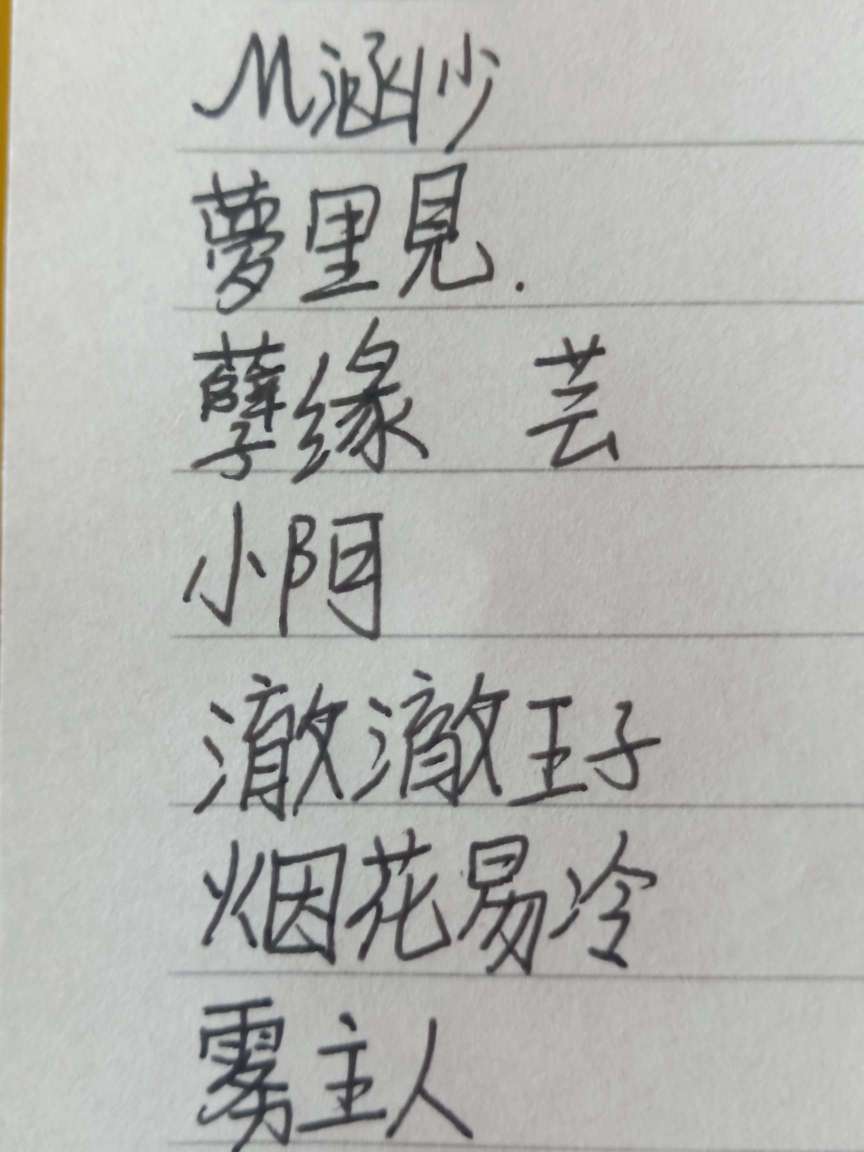 M涵小少
夢里見.
孽缘 芸
小阿
澈澈王子
烟花易冷
雾主人